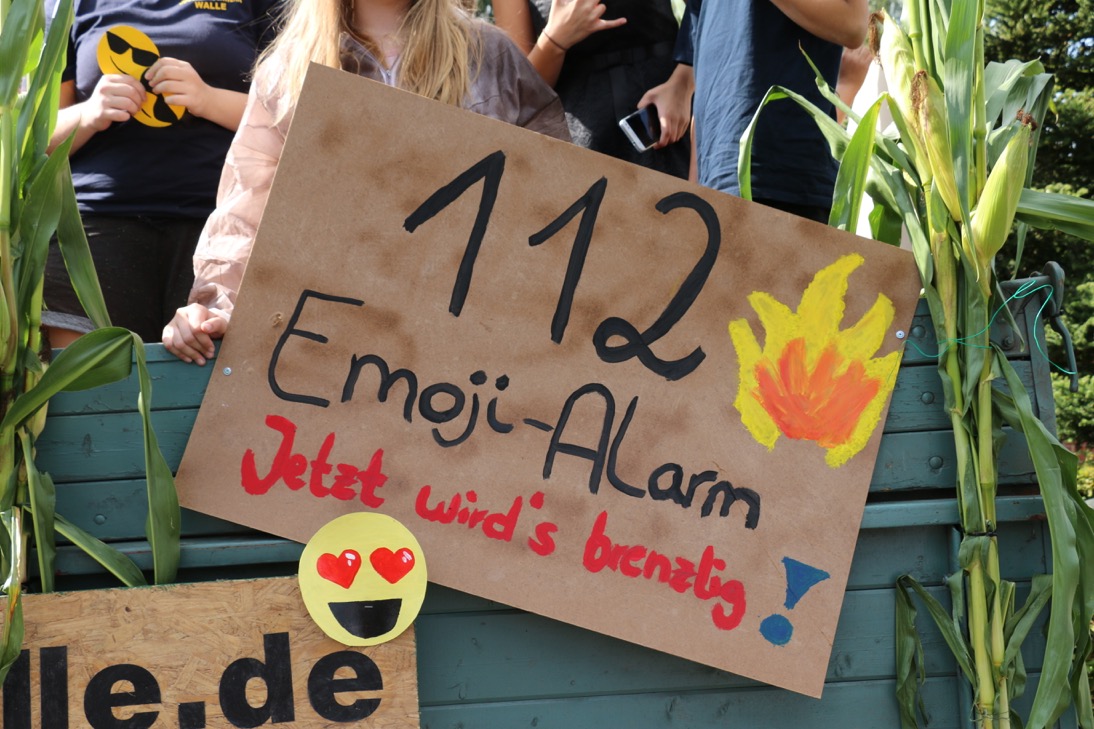 WALLE
112
Emoji-Alarm
Jetzt wird's brenzlig!
lle.de